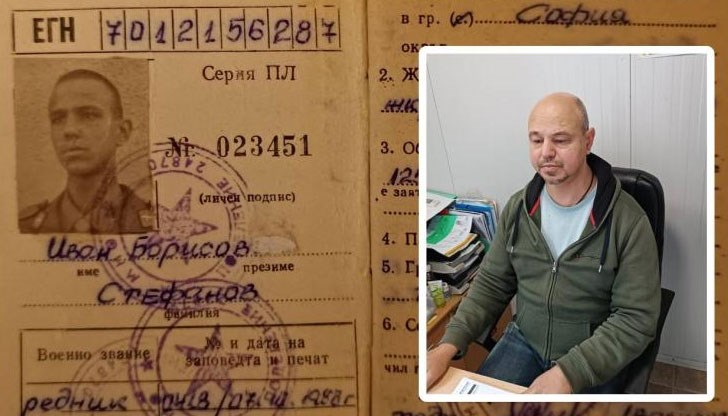 ЕГН 7012156287
Серия ПЛ
№ 023451
(личен подпис)
Иван Борисов
име презиме
Стефанов
фамилия
Военно звание № и дата на
заповедта и печат
редник
в гр. (с.) София
2. Ж
жк
3. Об
4. П
5. Г
6. Се
чил п